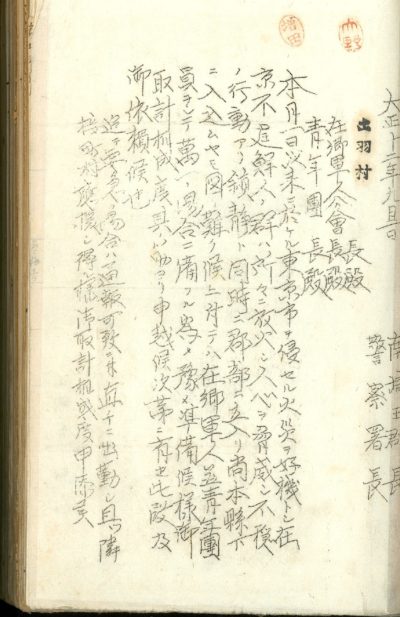 大正十二年九月 日
南埼玉郡長
警察署長
出羽村
長殿
在郷軍人分會長殿
青年團長殿
本月一日以来ニ於ケル東京市ヲ侵セル火災ヲ好機トシ在
京不逞鮮人ノ群ハ所々ニ放火シ人心ヲ脅威シ不穏
ノ行動アリ鎮静ト同時ニ郡部ニ立入リ尚本縣下
ニ入込ムヤモ図リ難ク候ニ付テハ在郷軍人並青年團
員ヲシテ萬一ノ場合ニ備フル為メ豫メ準備候様御
取計相成度其ノ筋ヨリ申越候次第ニ有之此段及
御依頼候也
追テ要急ノ場合ハ通報可致ニ付直チニ出勤シ且ツ隣
接町村應援シ得様御取計相成度申添